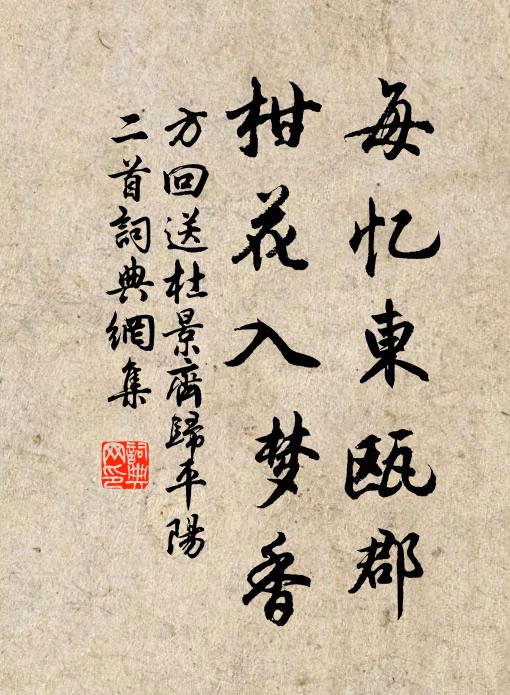 每忆東瓯郡
柑花入梦香
方回送杜景齊歸平陽
二首詞典網集
詞典網印